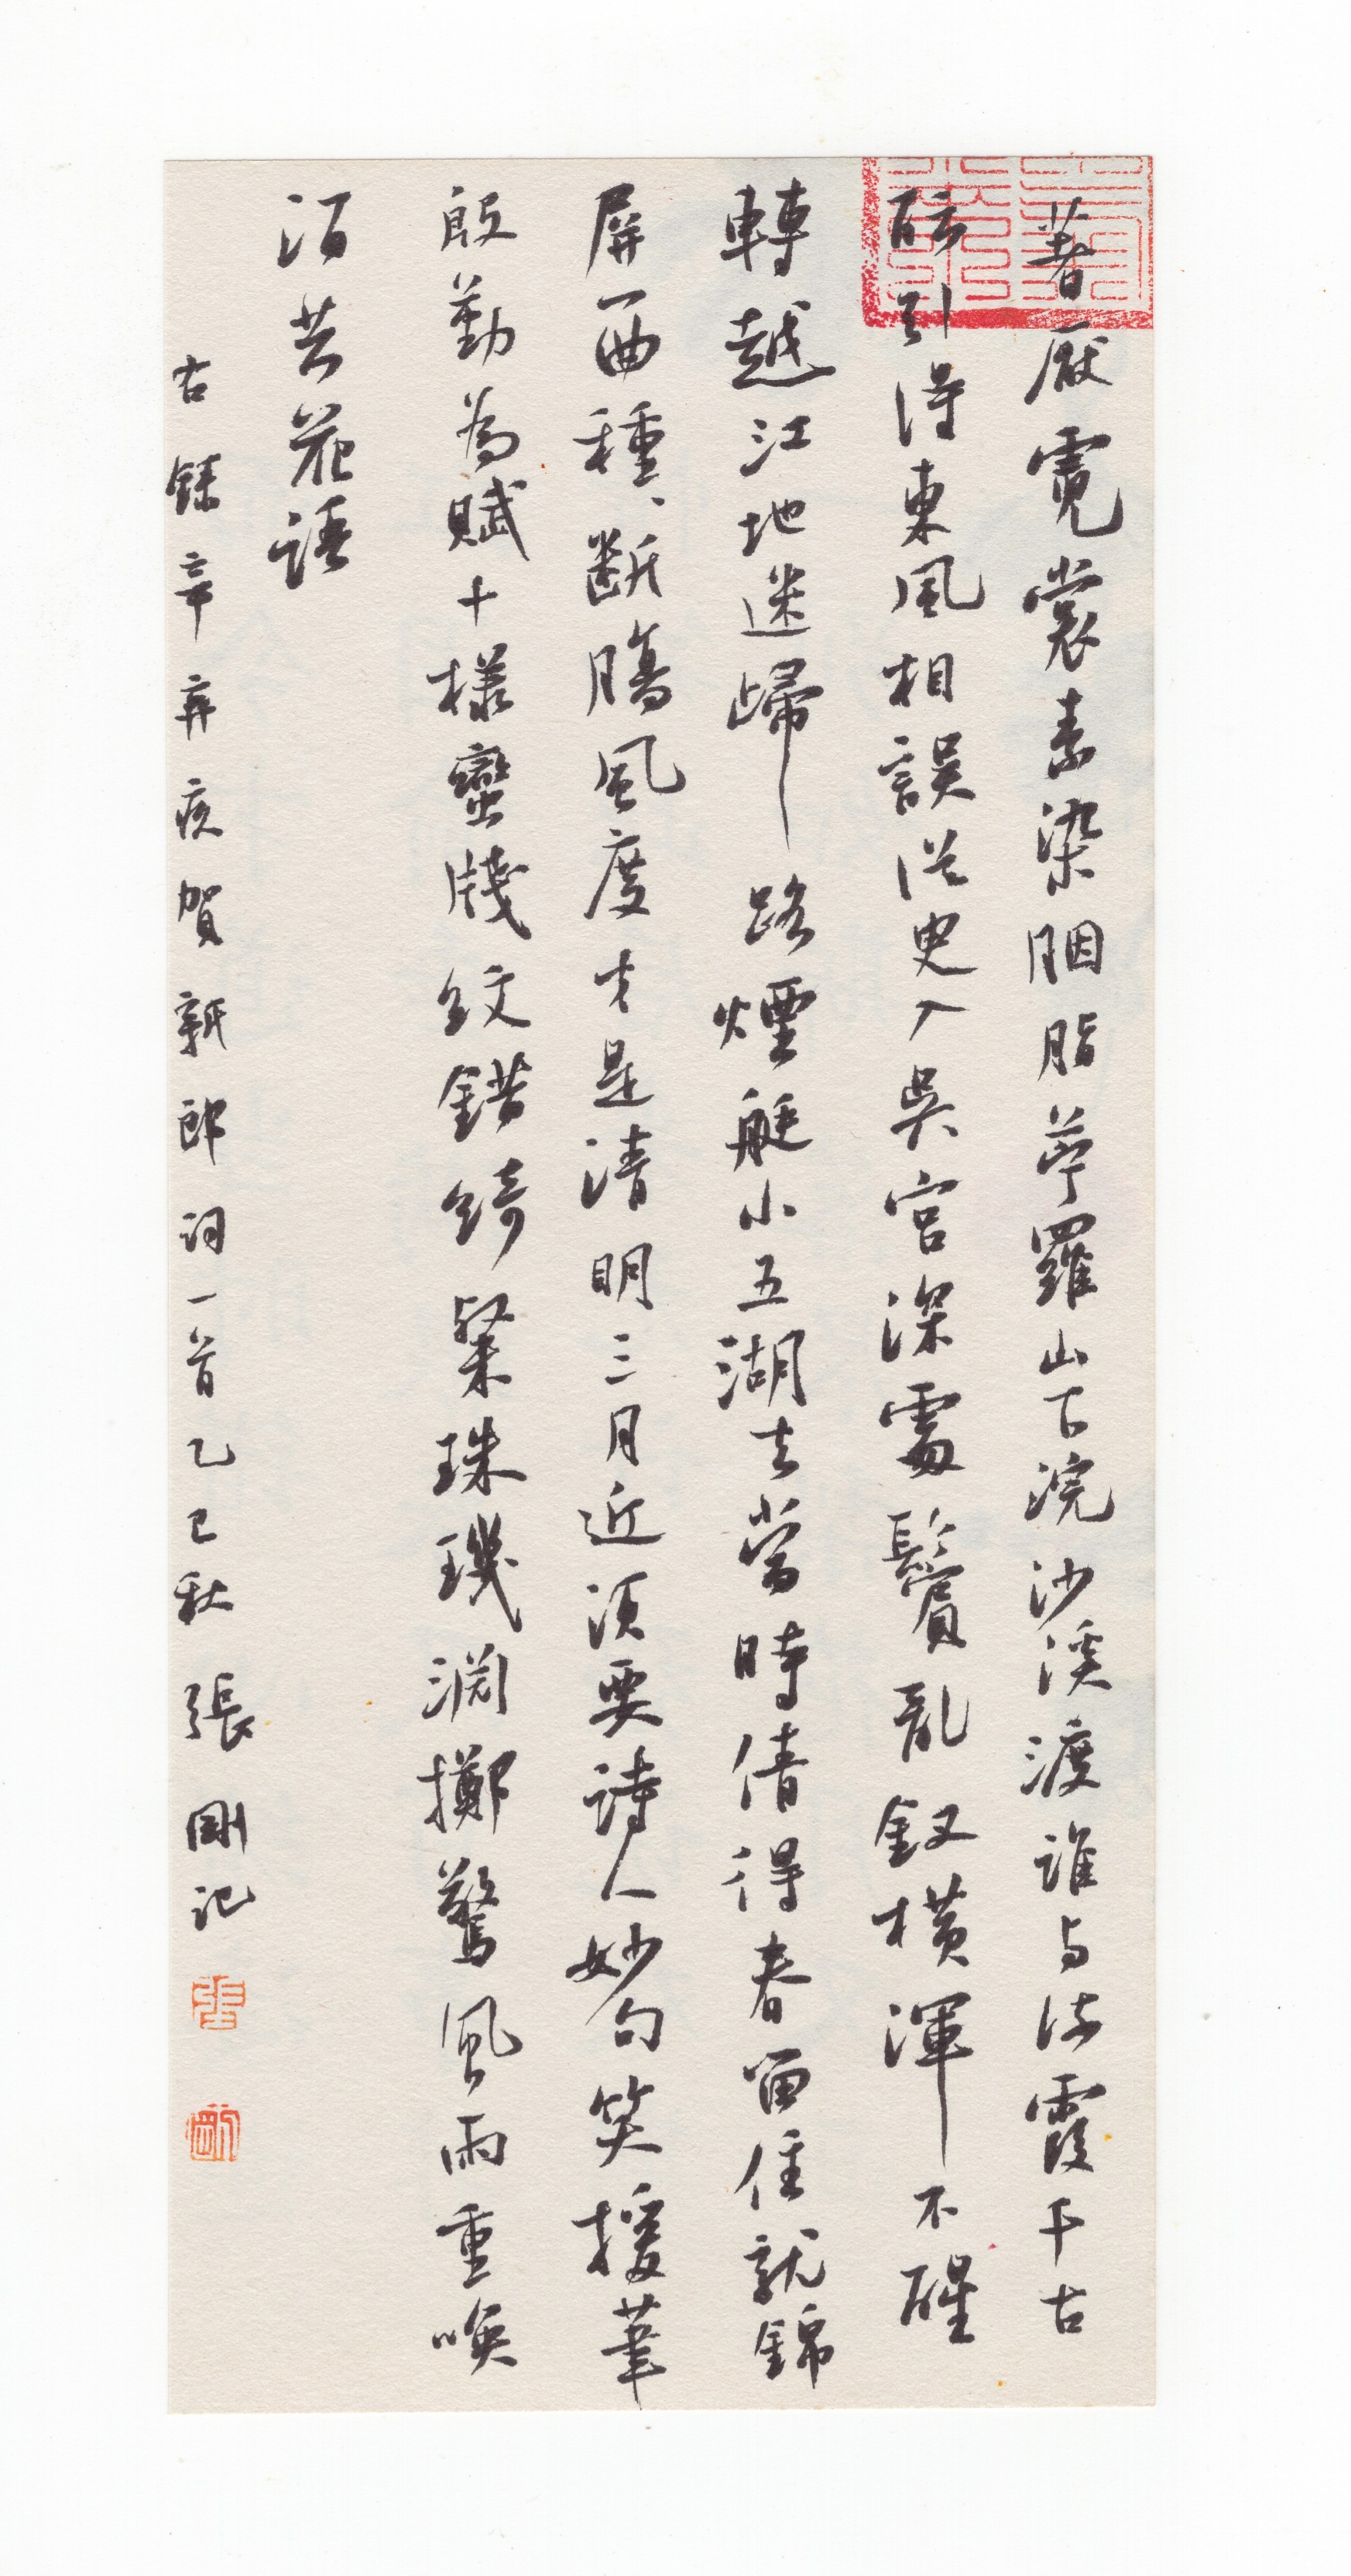 著厭霓裳素染胭脂苧羅山下浣沙溪渡誰与流霞千古
醅引得東風相誤從臾入吳宮深處鬢亂釵橫渾不醒
轉越江地迷歸路煙艇小五湖去當時倩得春留住就錦
屏一曲種、斷腸風度才是清明三月近須要詩人妙句笑援筆
殷勤為賦十樣蠻牋紋錯綺粲珠璣淵擲驚風雨重喚
酒共花語
古錄辛弃疾賀新郎詞一首乙巳秋張剛記
張
剛